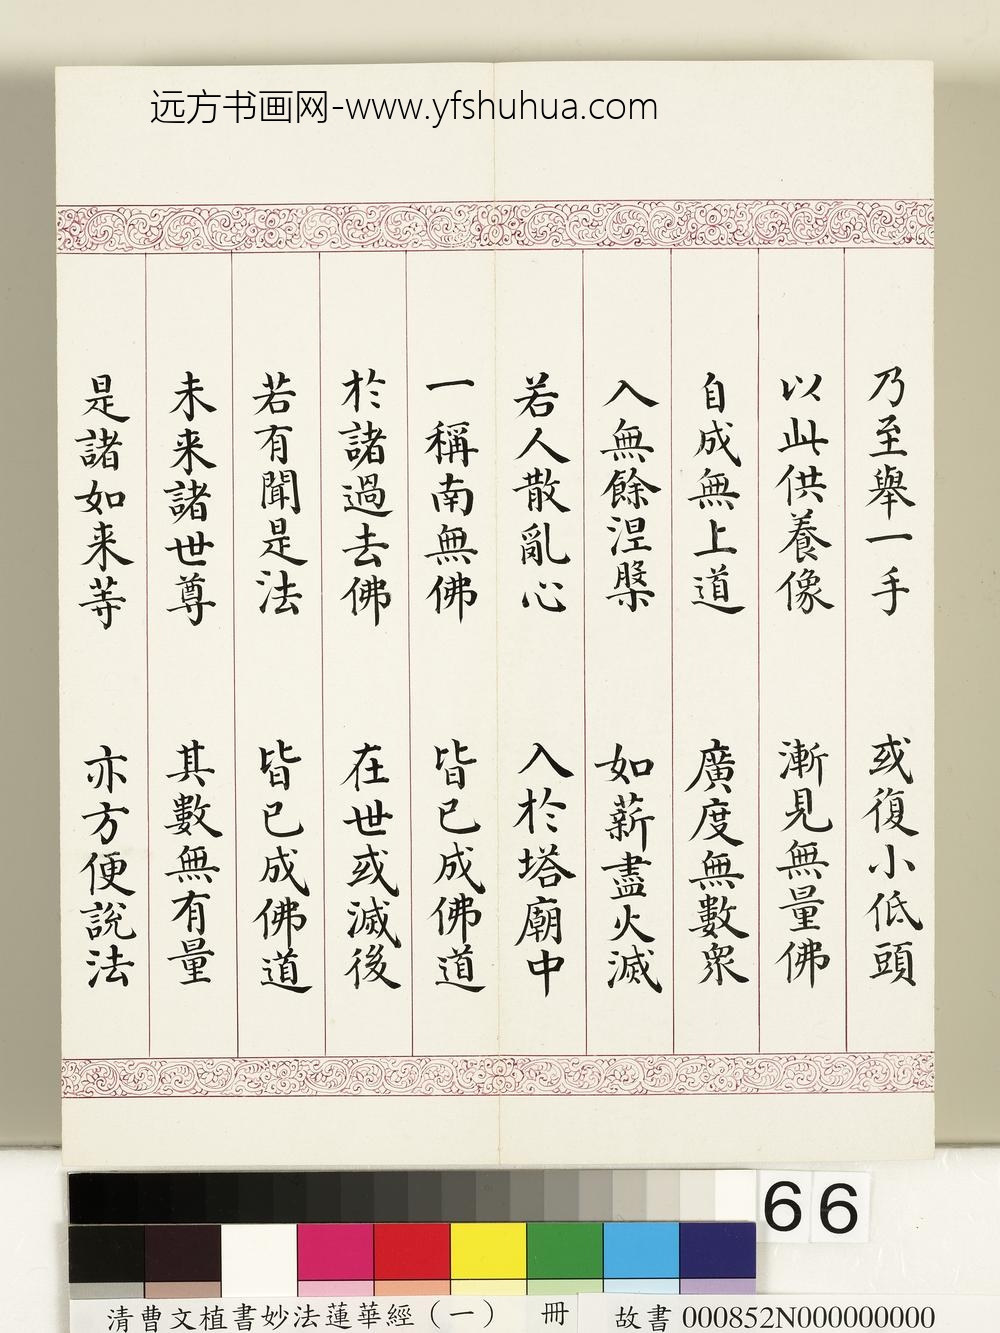 远方书画网-www.yfshuhua.com
乃至舉一手 或復小低頭
以此供養像 漸見無量佛
自成無上道 廣度無數衆
入無餘涅槃 如薪盡火滅
若人散亂心 入於塔廟中
一稱南無佛 皆已成佛道
於諸過去佛 在世或滅後
若有聞是法 皆已成佛道
未来諸世尊 其數無有量
是諸如来等 亦方便說法
66
清曹文植書妙法蓮華經（一） 冊 故書 000852N000000000